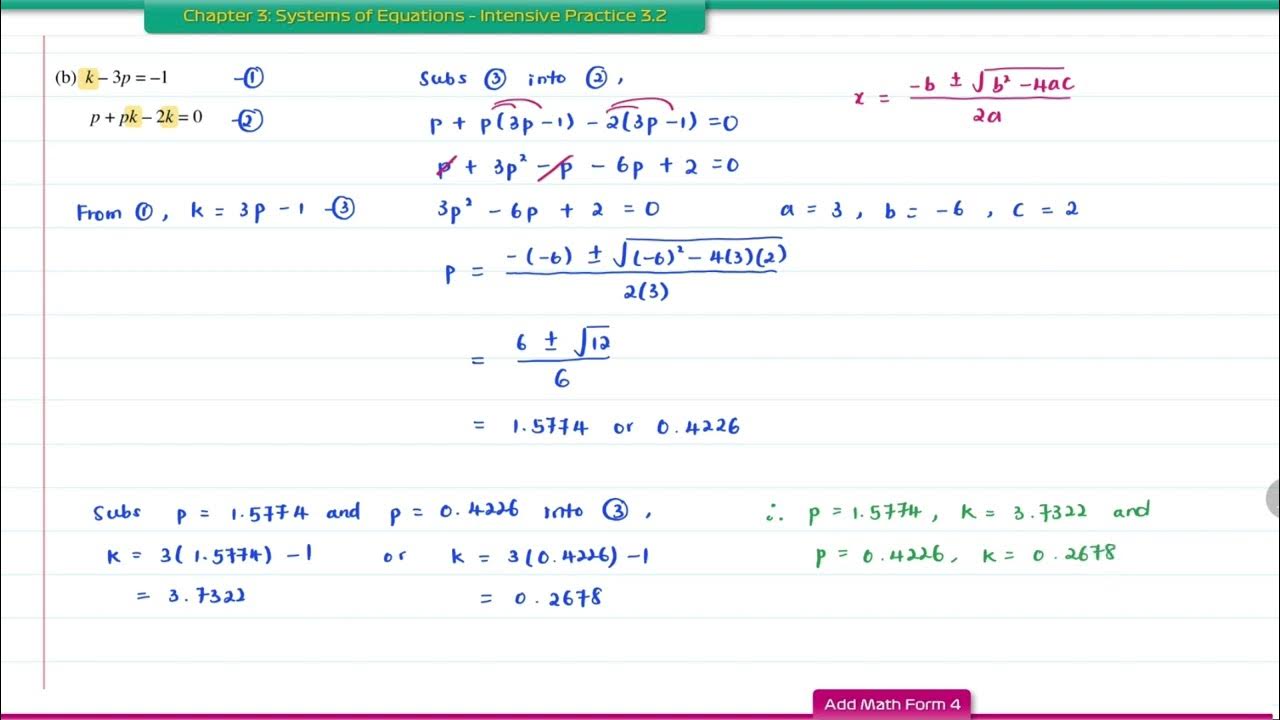 Chapter 3: Systems of Equations - Intensive Practice 3.2
(b) k – 3p = –1 –①
p + pk – 2k = 0 –②
From ①, k = 3p - 1 –③
Subs ③ into ②,
p + p(3p - 1) - 2(3p - 1) = 0
p + 3p² - p - 6p + 2 = 0
3p² - 6p + 2 = 0
a = 3, b = -6, c = 2
x = (-b ± √(b² - 4ac)) / 2a
p = (-(-6) ± √((-6)² - 4(3)(2))) / 2(3)
= (6 ± √12) / 6
= 1.5774 or 0.4226
Subs p = 1.5774 and p = 0.4226 into ③,
k = 3(1.5774) - 1 or k = 3(0.4226) - 1
= 3.7322 = 0.2678
∴ p = 1.5774, k = 3.7322 and
p = 0.4226, k = 0.2678
Add Math Form 4